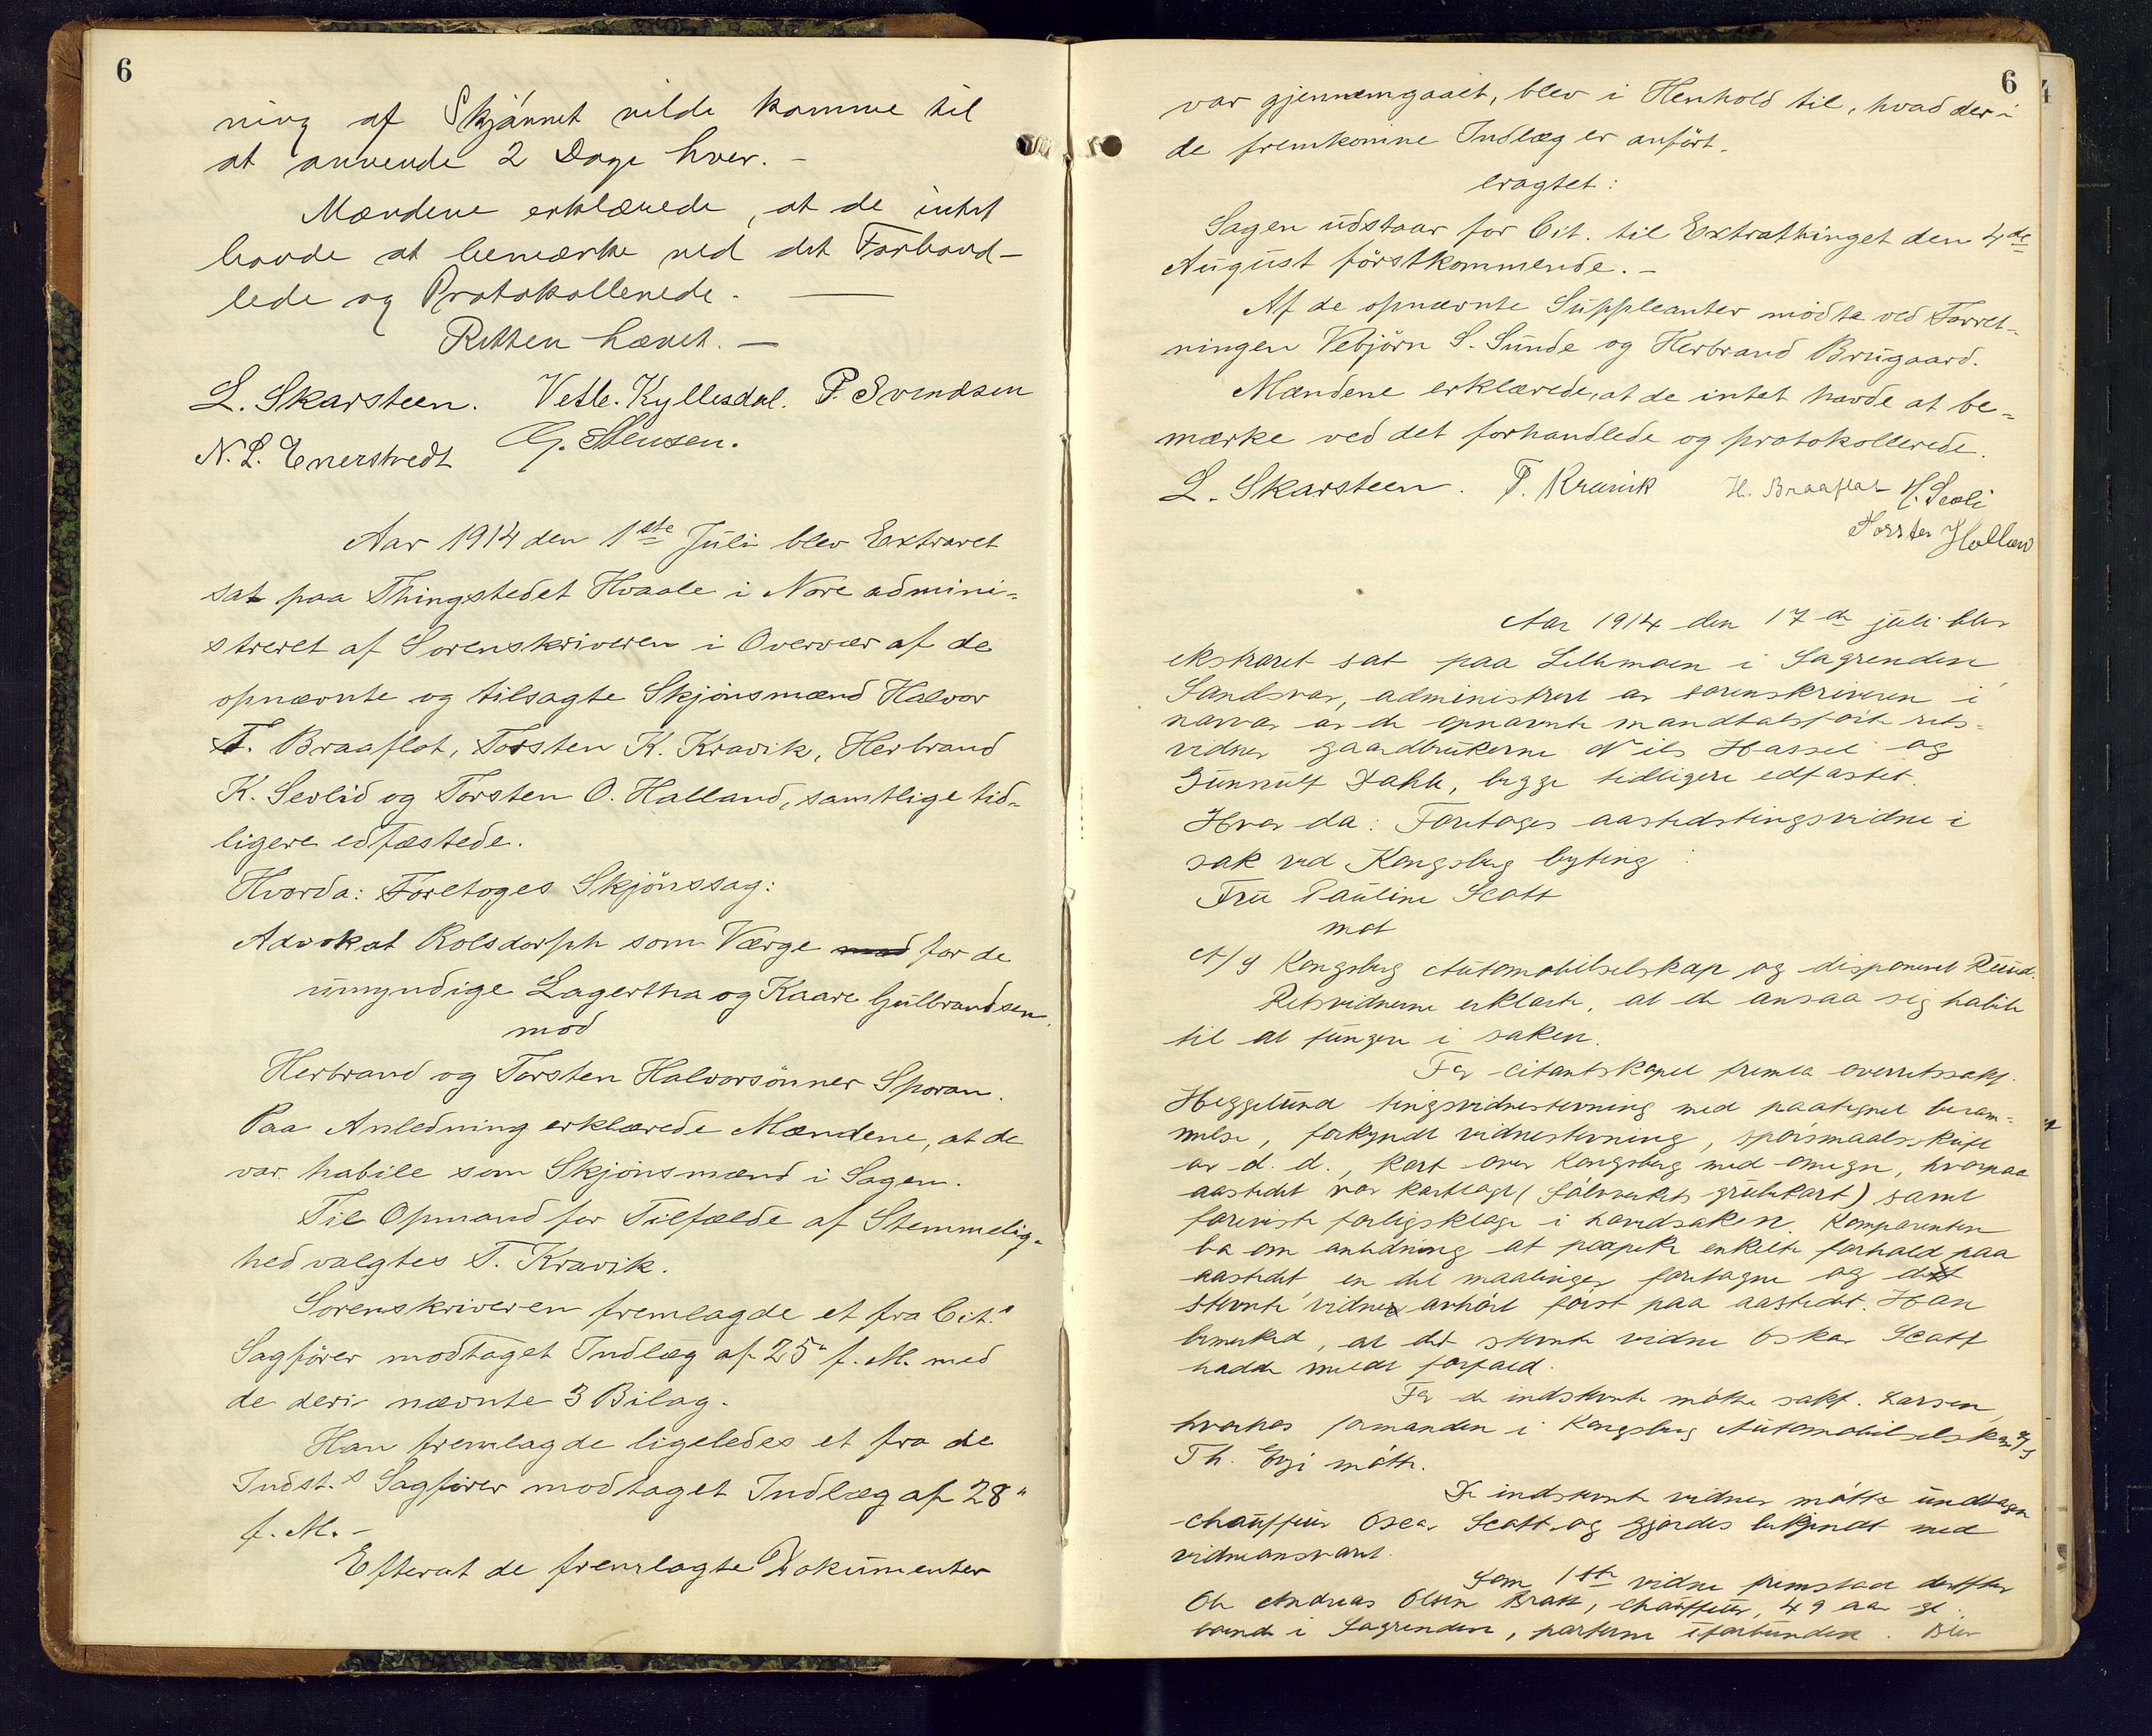 6
ning af Skjønnet vilde komme til
at anvende 2 Dage hver. –
Mændene erklærede, at de intet
havde at bemærke ved det Forhand-
lede og Protokollerede. –
Retten hævet. –
L. Skarsteen. Vetle. Kyllesdal. P. Svendsen
N. L. Enerstvedt G. Steusen.
Aar 1914 den 1ste Juli blev Extraret
sat paa Thingstedet Hvaale i Nore admini-
streret af Sorenskriveren i Overvær af de
opnævnte og tilsagte Skjønsmænd Halvor
T. Braaflot, Torsten K. Kravik, Herbrand
K. Sevlid og Torsten O. Halland, samtlige tid-
ligere edfæstede.
Hvorda: Foretoges Skjønssag:
Advokat Rolsdorph som Værge mod for de
umyndige Lagertha og Kaare Gulbrandsen.
mod
Herbrand og Torsten Halvorsønner Sporan.
Paa Anledning erklærede Mændene, at de
var habile som Skjønsmænd i Sagen.
Til Opmand for Tilfælde af Stemmelig-
hed valgtes T. Kravik.
Sorenskriveren fremlagde et fra Cit.s
Sagfører modtaget Indlæg af 25" f. M. med
de deri nævnte 3 Bilag.
Han fremlagde ligeledes et fra de
Indst.s Sagfører modtaget Indlæg af 28"
f. M. –
Efterat de fremlagte Dokumenter
6
var gjennemgaaet, blev i Henhold til, hvad der i
de fremkomne Indlæg er anført.
eragtet:
Sagen udstaar for Cit. til Extrathinget den 4de
August førstkommende. –
Af de opnævnte Suppleanter mødte ved Forret-
ningen Vebjørn S. Sunde og Herbrand Brugaard.
Mændene erklærede, at de intet havde at be-
mærke ved det forhandlede og protokollerede.
L. Skarsteen. T. Kravik H. Braaflat H. Sevli
Torsten Halland
Aar 1914 den 17de juli blev
ekstraret sat paa Lillemoen i Sagrenden
Sandsvær, administrert av sorenskriveren i
nærvær av de opnævnte mandtalsførte rets-
vidner gaardbrukerne Nils Hassel og
Gunnulf Dahle, begge tidligere edfæstet.
Hvor da: Foretoges aastedstingsvidne i
sak ved Kongsberg byting:
Fru Pauline Scott
mot
A/S Kongsberg Automobilselskap og disponent Ruud.
Retsvidnerne erklærte, at de ansaa sig habile
til at fungere i saken.
For citantskapet fremla overretssakf.
Heggelund tingsvidnestevning med paategnet beram-
melse, forkyndt vidnestevning, spørsmaalsskrift
av d. d., kart over Kongsberg med omegn, hvorpaa
aastedet var kartlagt (Sølvverkets grubekart) samt
foreviste forligsklage i hovedsaken. Komparenten
ba om anledning at paapeke enkelte forhold paa
aastedet en del maalinger foretagne og det
stevnte vidne avhørt først paa aastedet. Han
bemerket, at det stevnte vidne Oskar Scott
hadde meldt forfald.
For de indstevnte møtte sakf. Larsen,
hvorhos formanden i Kongsberg Automobilselskap A/S
Th. møtte.
De indstevnte vidner møtte undtagen
chauffeur Oscar Scott og gjordes bekjendt med
vidneansvaret.
Som 1ste vidne fremstod derefter
Ole Andreas Olsen Bratt, chauffeur, 49 aar gl.
boende i Sagrenden, parterne uforbunden. Blev